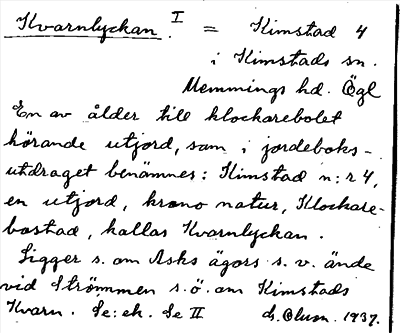 Kvarnlyckan. I = Kimstad 4
i Kimstads sn.
Memmings hd. Ögl
En av ålder till klockarebolet
hörande utjord, som i jordeboks-
utdraget benämnes: Kimstad n:r 4,
en utjord, krono natur, Klockare-
bostad, kallas Kvarnlyckan.
Ligger s. om Asks ägors s. v. ände
vid Strömmen s. ö. om Kimstads
Kvarn. Se: ek. Se II